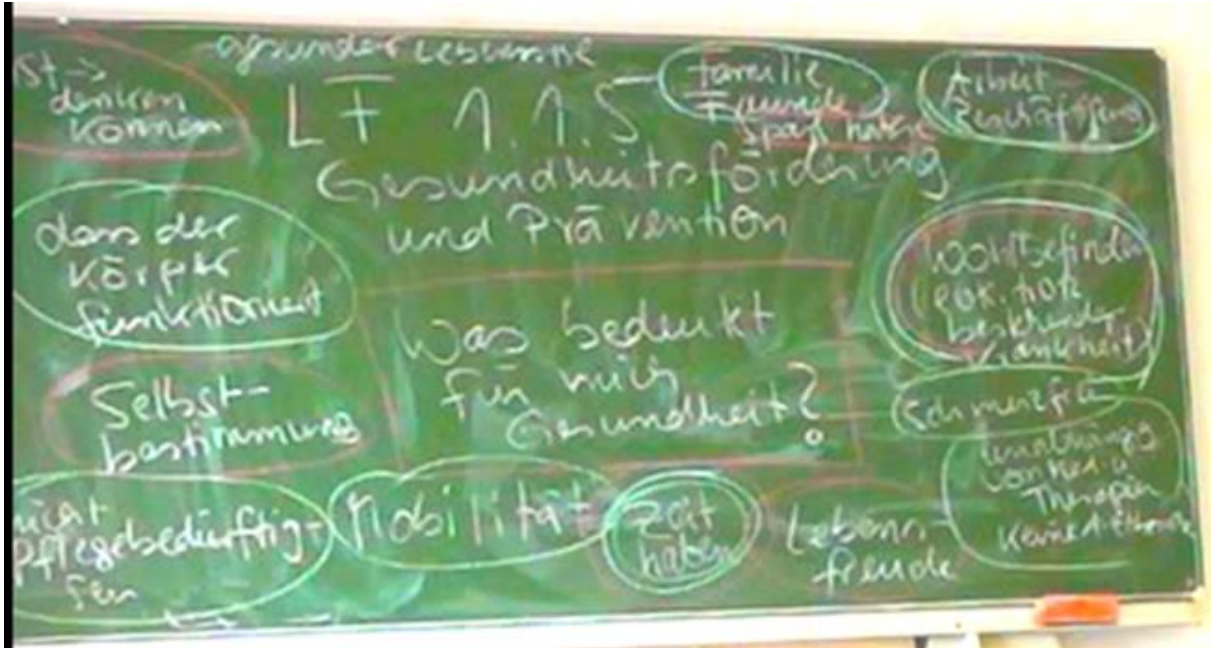 gesunder Lebensstil
LF 1.1.5
Gesundheitsförderung
und Prävention
ist →
denken
können
Familie
Freunde
Spaß haben
Arbeit
Beschäftigung
dass der
Körper
funktioniert
Was bedeutet
für mich
Gesundheit?
Wohlbefinden
bestehender
Krankheit)
Selbst-
bestimmung
Schmerzfrei
Unabhängig
von Med. u
Therapien
Keine
nicht
Pflegebedürftig
sein
Mobilität
Zeit
haben
Lebens-
freude